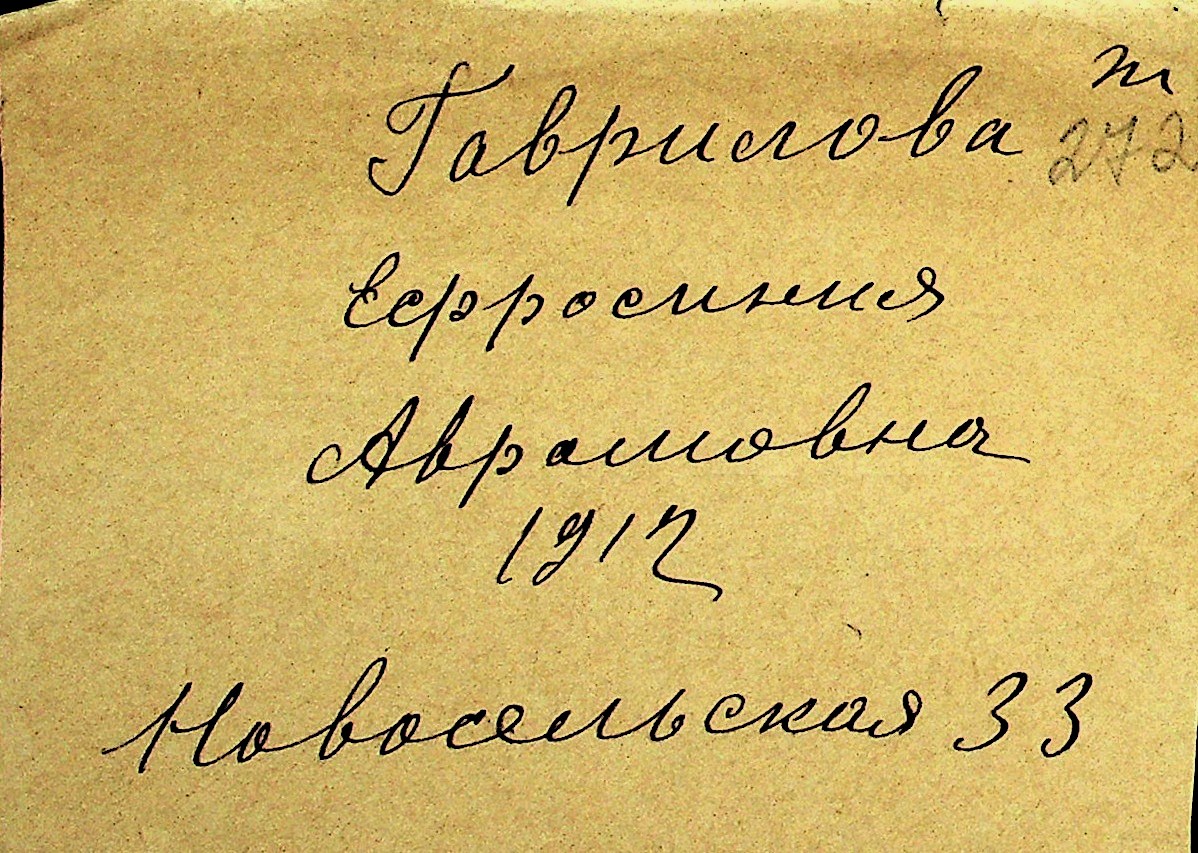 Гаврилова т
272
Ефросиния
Аврамовна
1912
Новосельская 33